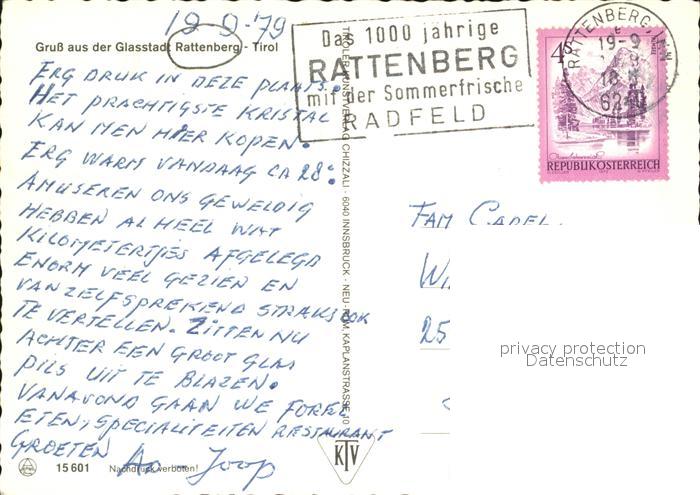 19-9-79
Gruß aus der Glasstadt Rattenberg - Tirol
ERG DRUK IN DEZE PLAATS.
HET PRACHTIGSTE KRISTAL
KAN MEN HIER KOPEN.
ERG WARM VANDAAG CA 28°.
AMUSEREN ONS GEWELDIG
HEBBEN AL HEEL WAT
KILOMETERTJES AFGELEGD
ENORM VEEL GEZIEN EN
VANZELFSPREKEND STRAKS OOK
TE VERTELLEN. ZITTEN NU
ACHTER EEN GROOT GLAS
PILS UIT TE BLAZEN.
VANAVOND GAAN WE FOREL
ETEN, SPECIALITEITEN RESTAURANT
GROETEN
Joop
15601 Nachdruck verboten!
TIROLER KUNSTVERLAG CHIZZALI · 6040 INNSBRUCK - NEU-RUM, KAPLANSTRASSE 10
KTV
Das 1000 jährige
RATTENBERG
mit der Sommerfrische
RADFELD
RATTENBERG, INN
19-9
18
6240
4S
REPUBLIK ÖSTERREICH
FAM
25
privacy protection
Datenschutz